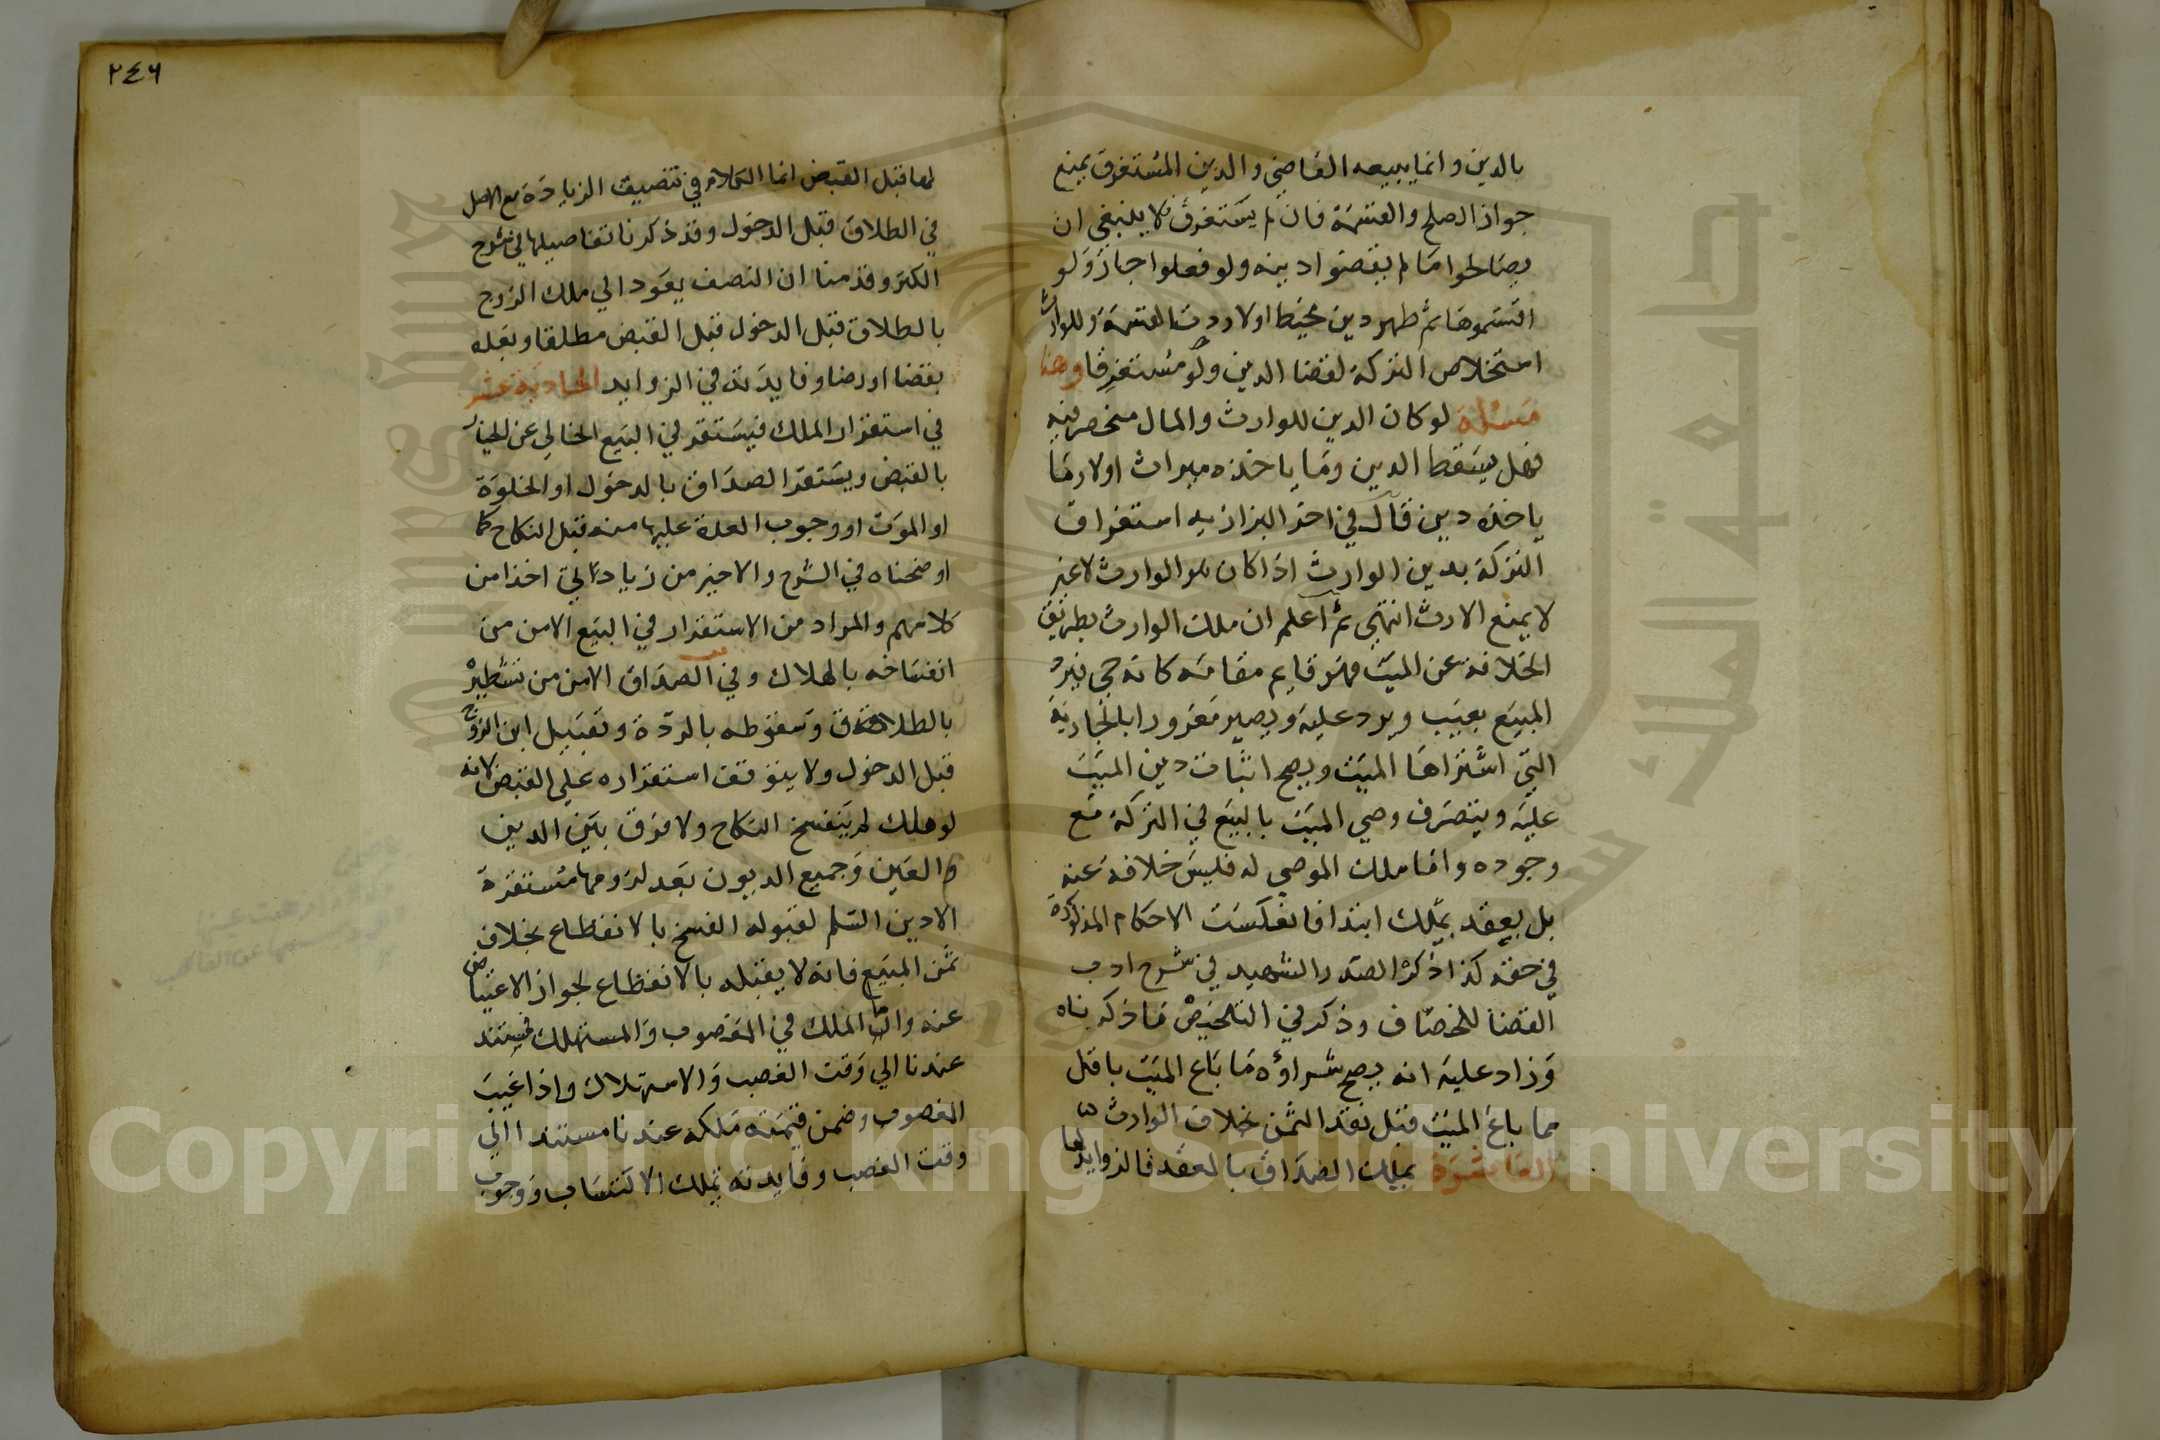 بالدين وانما يبيعه القاضي والدين المستغرق يمنع
جواز الصلح والقسمة فان لم يستغرق فلا ينبغي ان
يصالحوا ما لم يقضوا دينه ولو فعلوا جاز ولو
اقتسموها ثم ظهر دين محيط اولا ردت القسمة وللوارث
استخلاص التركة لقضا الدين ولو مستغرقا وهنا
مسئلة لو كان الدين للوارث والمال منحصر فيه
فهل يسقط الدين وما ياخذه ميراث اولا وما
ياخذه دين قال في اخر البزازيه استغراق
التركة بدين الوارث اذا كان هو الوارث لا غير
لا يمنع الارث انتهى ثم اعلم ان ملك الوارث بطريق
الخلافة عن الميت فهو قايم مقامه كانه حي فيرد
المبيع بعيب ويرد عليه ويصير مغرورا بالجارية
التي اشتراها الميت ويصح اثبات دين الميت
عليه ويتصرف وصي الميت بالبيع في التركة مع
وجوده واما ملك الموصى له فليس خلافة عنه
بل بعقد يملك ابتدا فانعكست الاحكام المذكورة
في حقه كذا ذكره الصدر الشهيد في شرح ادب
القضا للخصاف وذكر في التلخيص ما ذكرناه
وزاد عليه انه يصح شراؤه ما باع الميت باقل
مما باع الميت قبل نقد الثمن بخلاف الوارث
العاشرة يملك الصداق بالعقد فالزوايد لها
٢٤٦
لها قبل القبض انما الكلام في تنصيف الزيادة مع الاصل
في الطلاق قبل الدخول وقد ذكرنا تفاصيلها في شرح
الكنز وقدمنا ان النصف يعود الي ملك الزوج
بالطلاق قبل الدخول قبل القبض مطلقا وبعده
بقضا او رضا وفايدته في الزوايد الحادية عشر
في استقرار الملك فيستقر في البيع الخالي عن الخيار
بالقبض ويستقر الصداق بالدخول او الخلوة
او الموت او وجوب العدة عليها منه قبل النكاح كما
اوضحناه في الشرح والاخير من زياداتي اخذا من
كلامهم والمراد من الاستقرار في البيع الامن من
انفساخه بالهلاك وفي الصداق الامن من تشطيره
بالطلاق وسقوطه بالردة وتقبيل ابن الزوج
قبل الدخول ولا يتوقف استقراره علي القبض لانه
لو هلك لم ينفسخ النكاح ولا فرق بين الدين
والعين وجميع الديون بعد لزومها مستقرة
الا دين السلم لقبوله الفسخ بالانقطاع بخلاف
ثمن المبيع فانه لا يقبله بالانقطاع لجواز الاعتياض
عنه واما الملك في المغصوب والمستهلك فيستند
عندنا الي وقت الغصب والاستهلاك واذا غيب
المغصوب وضمن قيمته ملكه عندنا مستندا الي
وقت الغصب وفايدته تملك الاكتساب ووجوب
Copyright © King Saud University